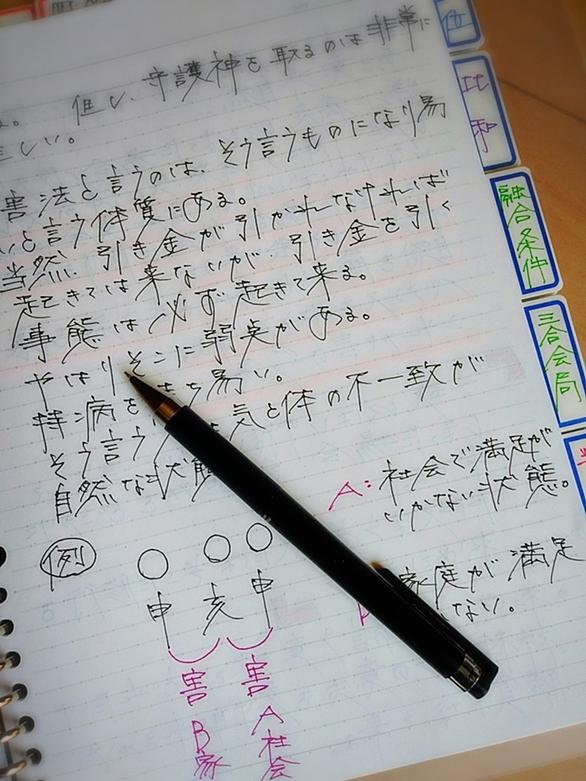 る。 但し、守護神を取るのは非常に
しい。
害法と言うのは、そう言うものになり易
いと言う体質にある。
当然、引き金が引かれなければ
起きては来ないが、引き金を引く
事態は必ず起きて来る。
やはりそこに弱点がある。
持病を ち易い。
そう言う 気と体の不一致が
自然な状態
A: 社会で満足が
いかない状態。
家庭が満足
ない。
例
申 亥 申
害 害
B A
家 社会
比和
融合条件
三合会局